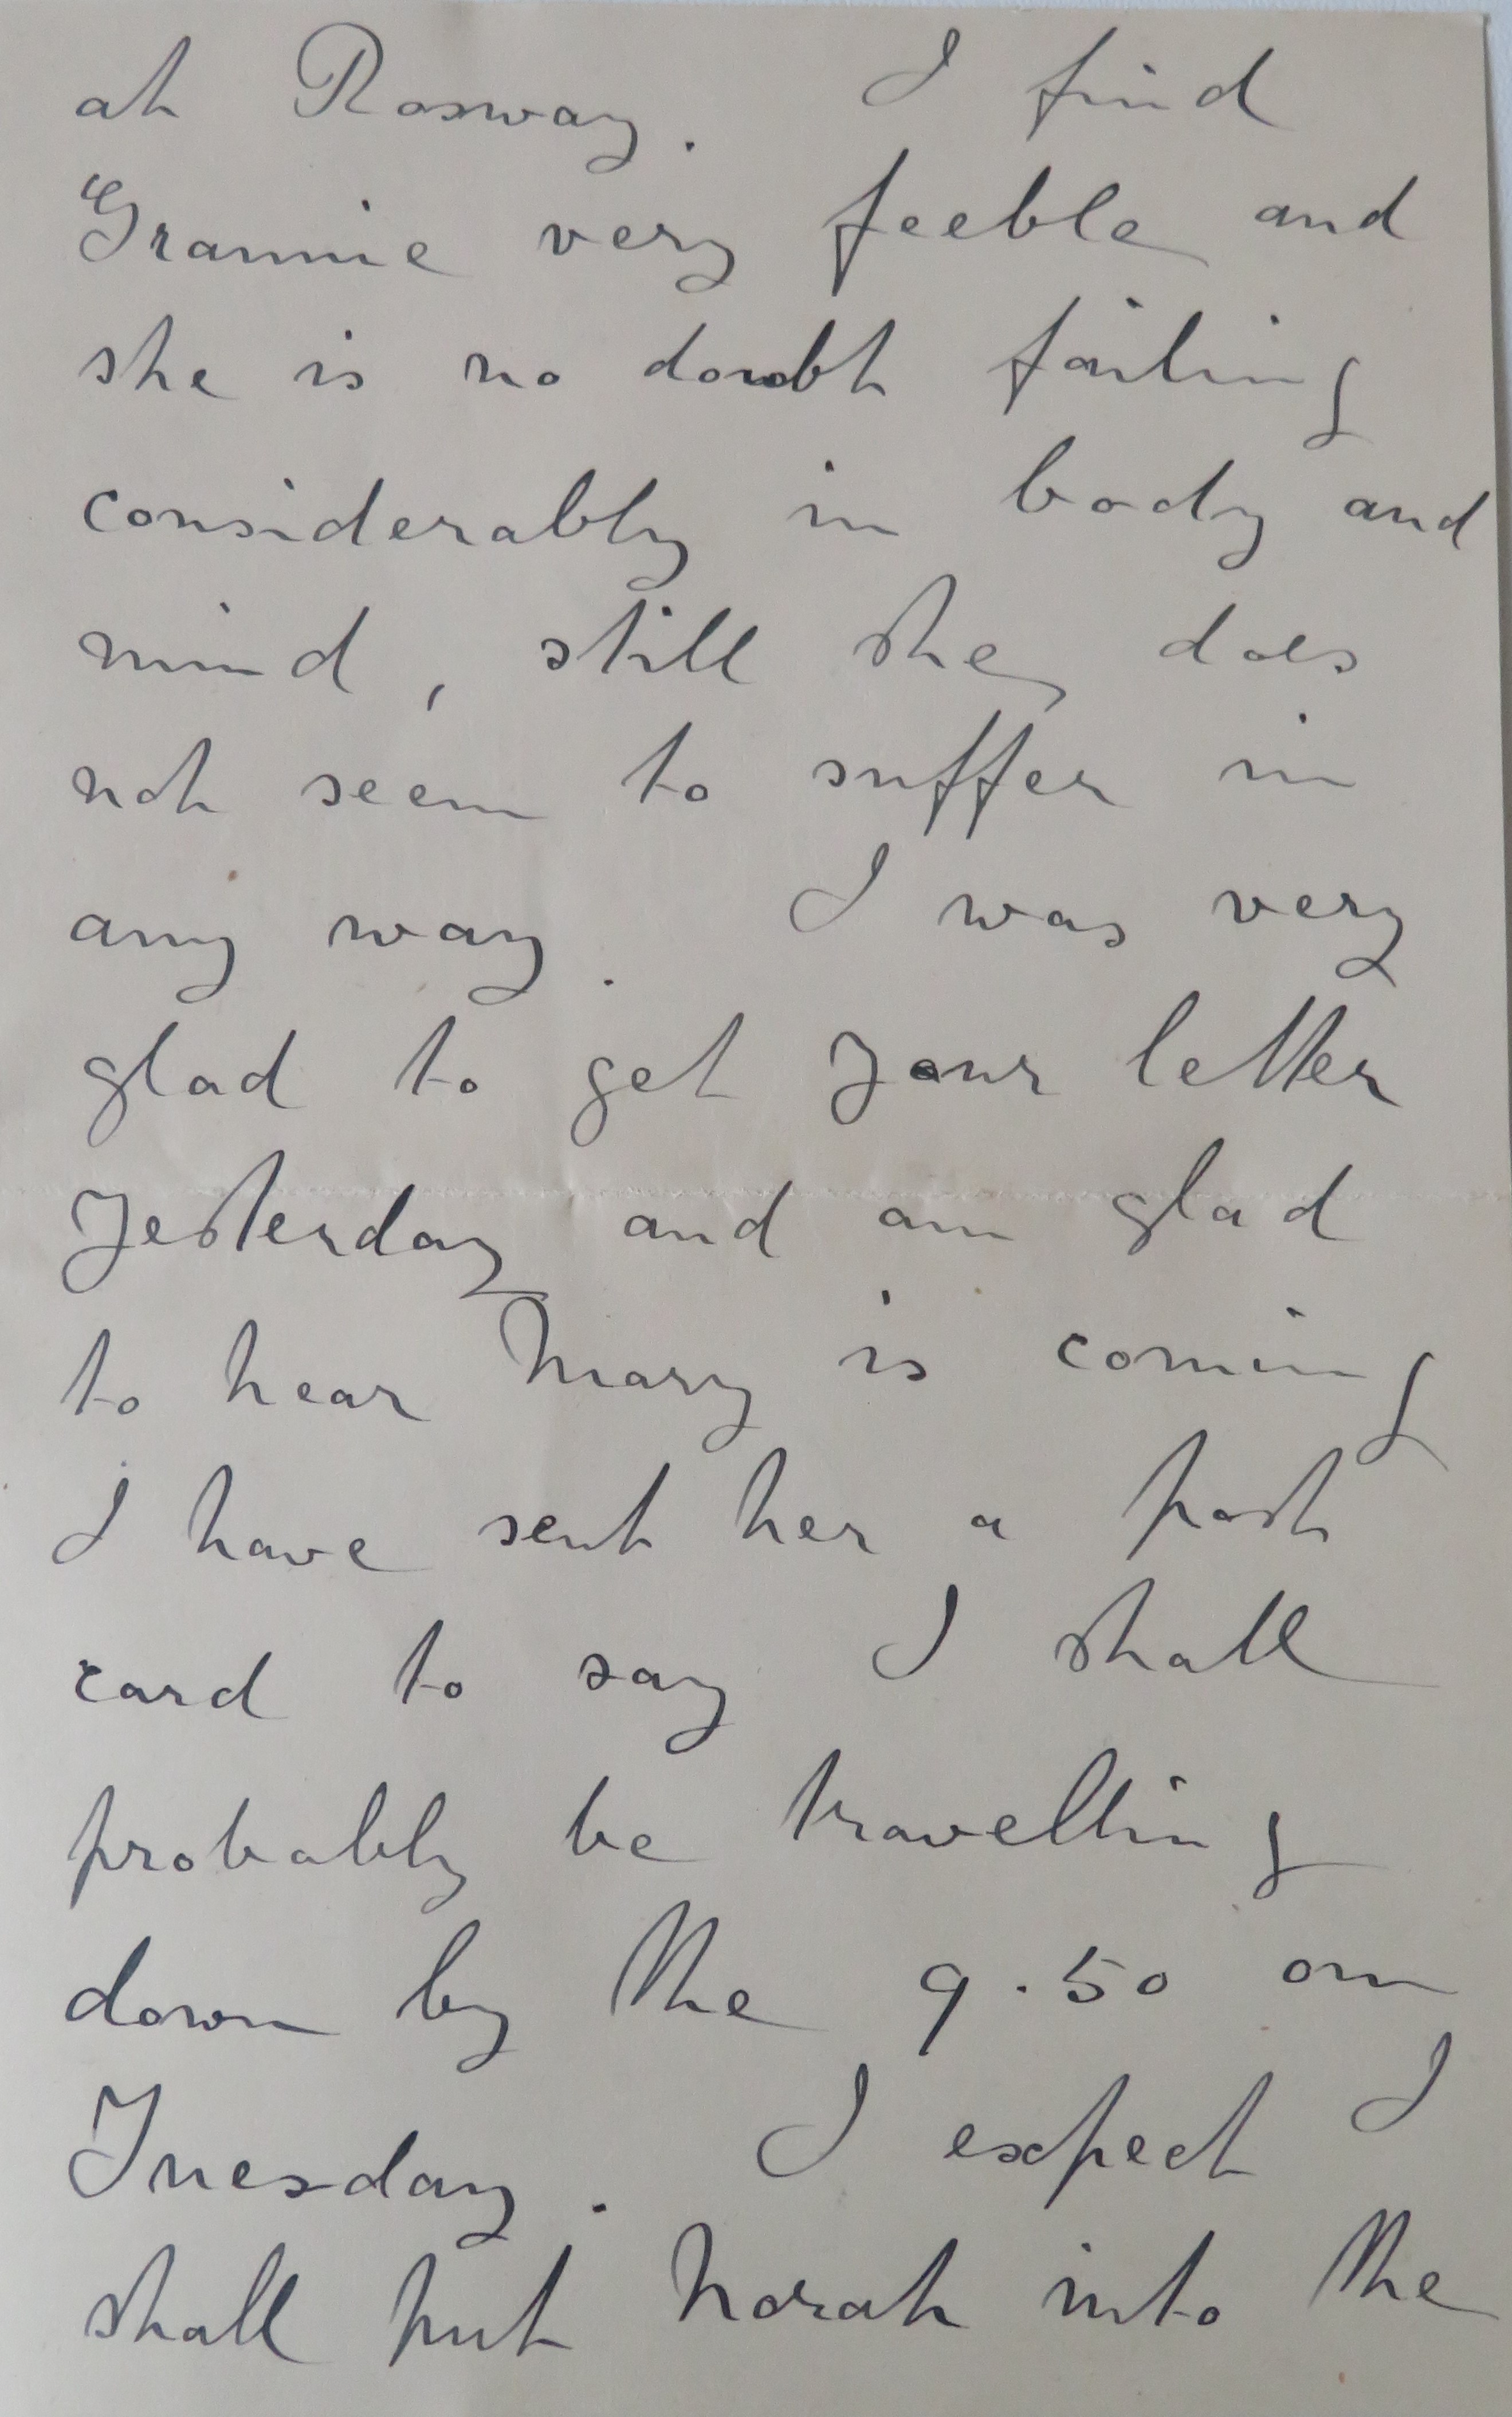 at Rosway. I find
Grannie very feeble and
she is no doubt failing
considerably in body and
mind, still she does
not seem to suffer in
any way. I was very
glad to get your letter
yesterday and am glad
to hear Mary is coming
I have sent her a post
card to say I shall
probably be travelling
down by the 9.50 on
Tuesday. I expect I
shall put Norah into the